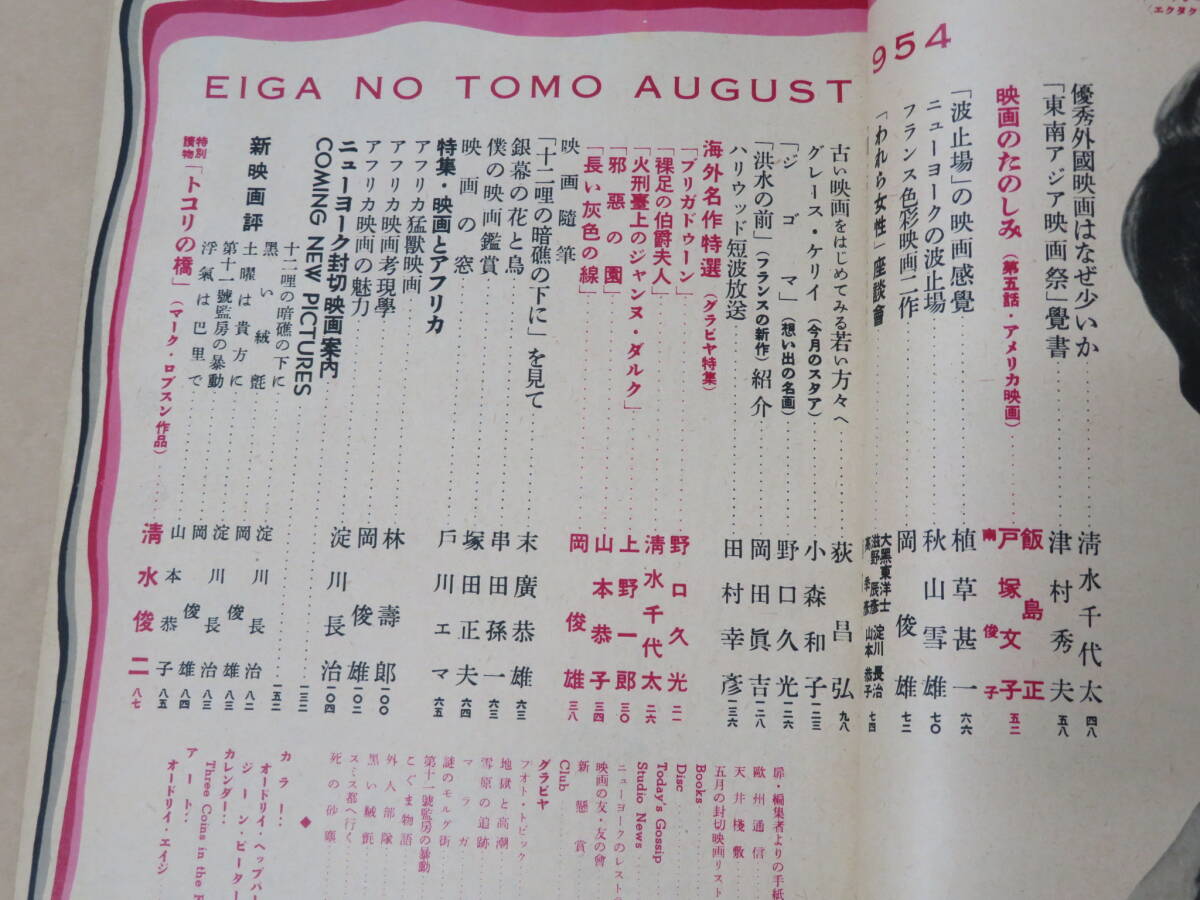 (エクタク
EIGA NO TOMO AUGUST
954
優秀外國映画はなぜ少いか……清水千代太 四八
「東南アジア映画祭」覺書……津村秀夫 五八
映画のたのしみ(第五話・アメリカ映画)……飯島正 戸塚文子 南俊子 五二
「波止場」の映画感覺……植草甚一 六六
ニューヨークの波止場……秋山雪雄 七〇
フランス色彩映画二作……岡俊雄 七二
「われら女性」座談會 大黒東洋士 滋野辰彦 淀川長治 山本恭子 七四
古い映画をはじめてみる若い方々へ……荻昌弘 九八
グレース・ケリイ(今月のスタア)……小森和子 一二三
「ジゴマ」(想い出の名画)……野口久光 一二六
「洪水の前」(フランスの新作)紹介……岡田眞吉 一二八
ハリウッド短波放送……田村幸彦 一三六
海外名作特選(グラビヤ特集)
「ブリガドゥーン」……野口久光 二一
「裸足の伯爵夫人」……清水千代太 二六
「火刑臺上のジャンヌ・ダルク」……上野一郎 三〇
「邪惡の園」……山本恭子 三四
「長い灰色の線」……岡俊雄 三八
映画隨筆
「十二哩の暗礁の下に」を見て……末廣恭雄 六三
銀幕の花と鳥……串田孫一 六三
僕の映画鑑賞……塚田正夫 六四
映画の窓……戸川エマ 六五
特集・映画とアフリカ
アフリカ猛獸映画……林壽郎 一〇〇
アフリカ映画考現學……岡俊雄 一〇二
アフリカ映画の魅力……淀川長治 一〇四
ニューヨーク封切映画案内……一三二
COMING NEW PICTURES……一五二
新映画評
十二哩の暗礁の下に……淀川長治 八二
黒い絨氈……岡俊雄 八三
土曜は貴方に……淀川長治 八三
第十一號監房の暴動……岡俊雄 八四
浮氣は巴里で……山本恭子 八五
特別讀物「トコリの橋」(マーク・ロブスン作品)……清水俊二 八七
扉・編集者よりの手紙
歐州通信
天井棧敷
五月の封切映画リスト
Books
Disc
Today's Gossip
Studio News
ニューヨークのレスト
映画の友・友の會
新懸賞
Club
グラビヤ
フオト・トピック
地獄と高潮
雪原の追跡
マラガ
謎のモルグ街
第十一號監房の暴動
こぐま物語
外人部隊
黒い絨氈
スミス都へ行く
死の砂塵
◆
カラー:
オードリイ・ヘップバー
ジーン・ピーター
カレンダー:
Three Coins in the
アート:
オードリイ・エイジ